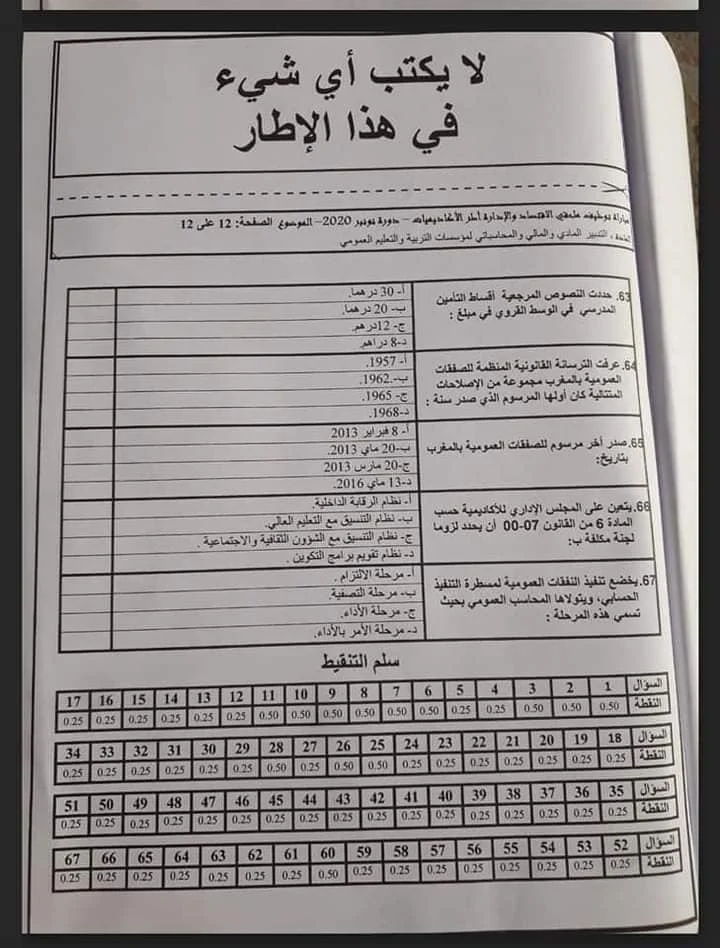 لا يكتب أي شيء
في هذا الإطار
مباراة توظيف ملحقي الاقتصاد والإدارة أطر الأكاديميات – دورة نونبر 2020– الموضوع الصفحة: 12 على 12
المادة: التدبير المادي والمالي والمحاسباتي لمؤسسات التربية والتعليم العمومي
63. حددت النصوص المرجعية أقساط التأمين
المدرسي في الوسط القروي في مبلغ :
أ- 30 درهما.
ب- 20 درهما.
ج- 12درهم.
د-8 دراهم.
64. عرفت الترسانة القانونية المنظمة للصفقات
العمومية بالمغرب مجموعة من الإصلاحات
المتتالية كان أولها المرسوم الذي صدر سنة :
أ- 1957.
ب-.1962.
ج- 1965.
د-1968.
65. صدر أخر مرسوم للصفقات العمومية بالمغرب
بتاريخ:
أ- 8 فبراير 2013
ب-20 ماي 2013.
ج-20 مارس 2013
د-13 ماي 2016.
66. يتعين على المجلس الإداري للأكاديمية حسب
المادة 6 من القانون 07-00 أن يحدد لزوما
لجنة مكلفة ب:
أ- نظام الرقابة الداخلية.
ب- نظام التنسيق مع التعليم العالي.
ج- نظام التنسيق مع الشؤون الثقافية والاجتماعية .
د- نظام تقويم برامج التكوين .
67. يخضع تنفيذ النفقات العمومية لمسطرة التنفيذ
الحسابي، ويتولاها المحاسب العمومي بحيث
تسمي هذه المرحلة :
أ- مرحلة الالتزام .
ب- مرحلة التصفية.
ج- مرحلة الأداء.
د- مرحلة الأمر بالأداء.
سلم التنقيط
السؤال 1 2 3 4 5 6 7 8 9 10 11 12 13 14 15 16 17
النقطة 0.50 0.50 0.50 0.25 0.25 0.50 0.50 0.50 0.50 0.50 0.50 0.25 0.25 0.25 0.25 0.25 0.25
السؤال 18 19 20 21 22 23 24 25 26 27 28 29 30 31 32 33 34
النقطة 0.25 0.25 0.25 0.25 0.25 0.25 0.25 0.50 0.50 0.25 0.50 0.25 0.25 0.25 0.25 0.25 0.25
السؤال 35 36 37 38 39 40 41 42 43 44 45 46 47 48 49 50 51
النقطة 0.25 0.25 0.25 0.25 0.25 0.25 0.25 0.25 0.25 0.25 0.25 0.25 0.25 0.25 0.25 0.25 0.25
السؤال 52 53 54 55 56 57 58 59 60 61 62 63 64 65 66 67
النقطة 0.25 0.25 0.25 0.25 0.25 0.25 0.25 0.25 0.50 0.25 0.25 0.25 0.25 0.25 0.25 0.25